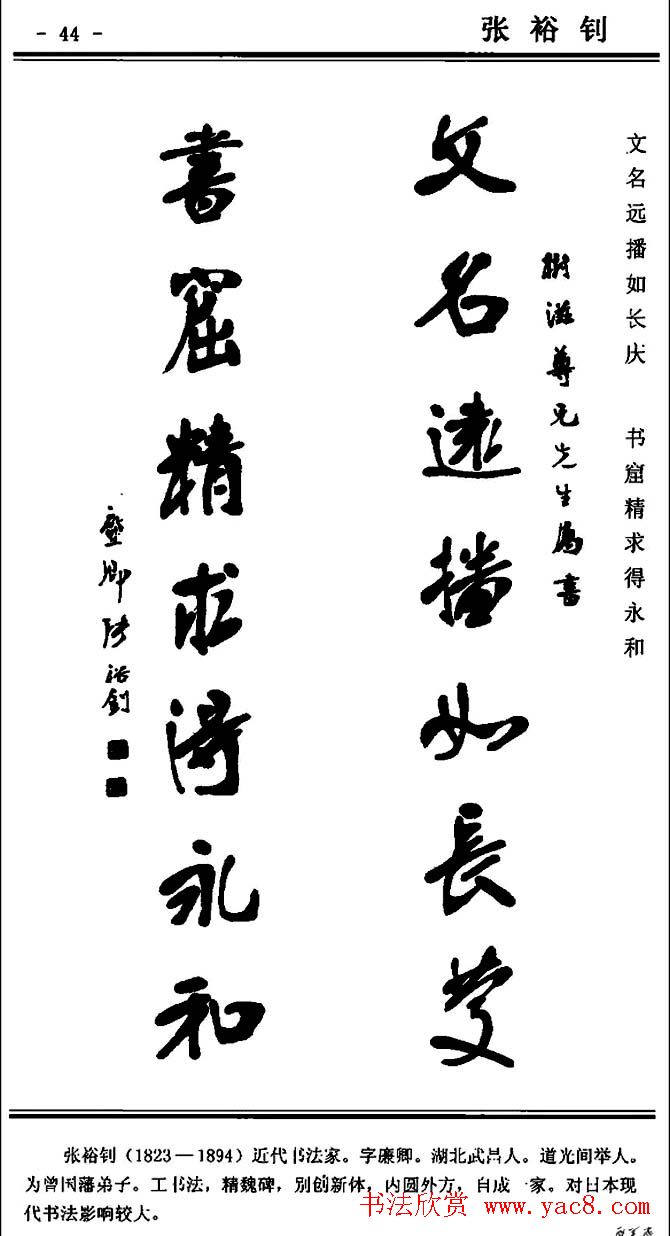 - 44 -
张裕钊
文名远播如长庆 书窟精求得永和
樹滋尊兄先生属書
文名遠播如長慶
書窟精求得永和
廉卿張裕釗
张裕钊（1823—1894）近代书法家。字廉卿。湖北武昌人。道光间举人。
为曾国藩弟子。工书法，精魏碑，别创新体，内圆外方，自成一家。对日本现
代书法影响较大。
书法欣赏 www.yac8.com